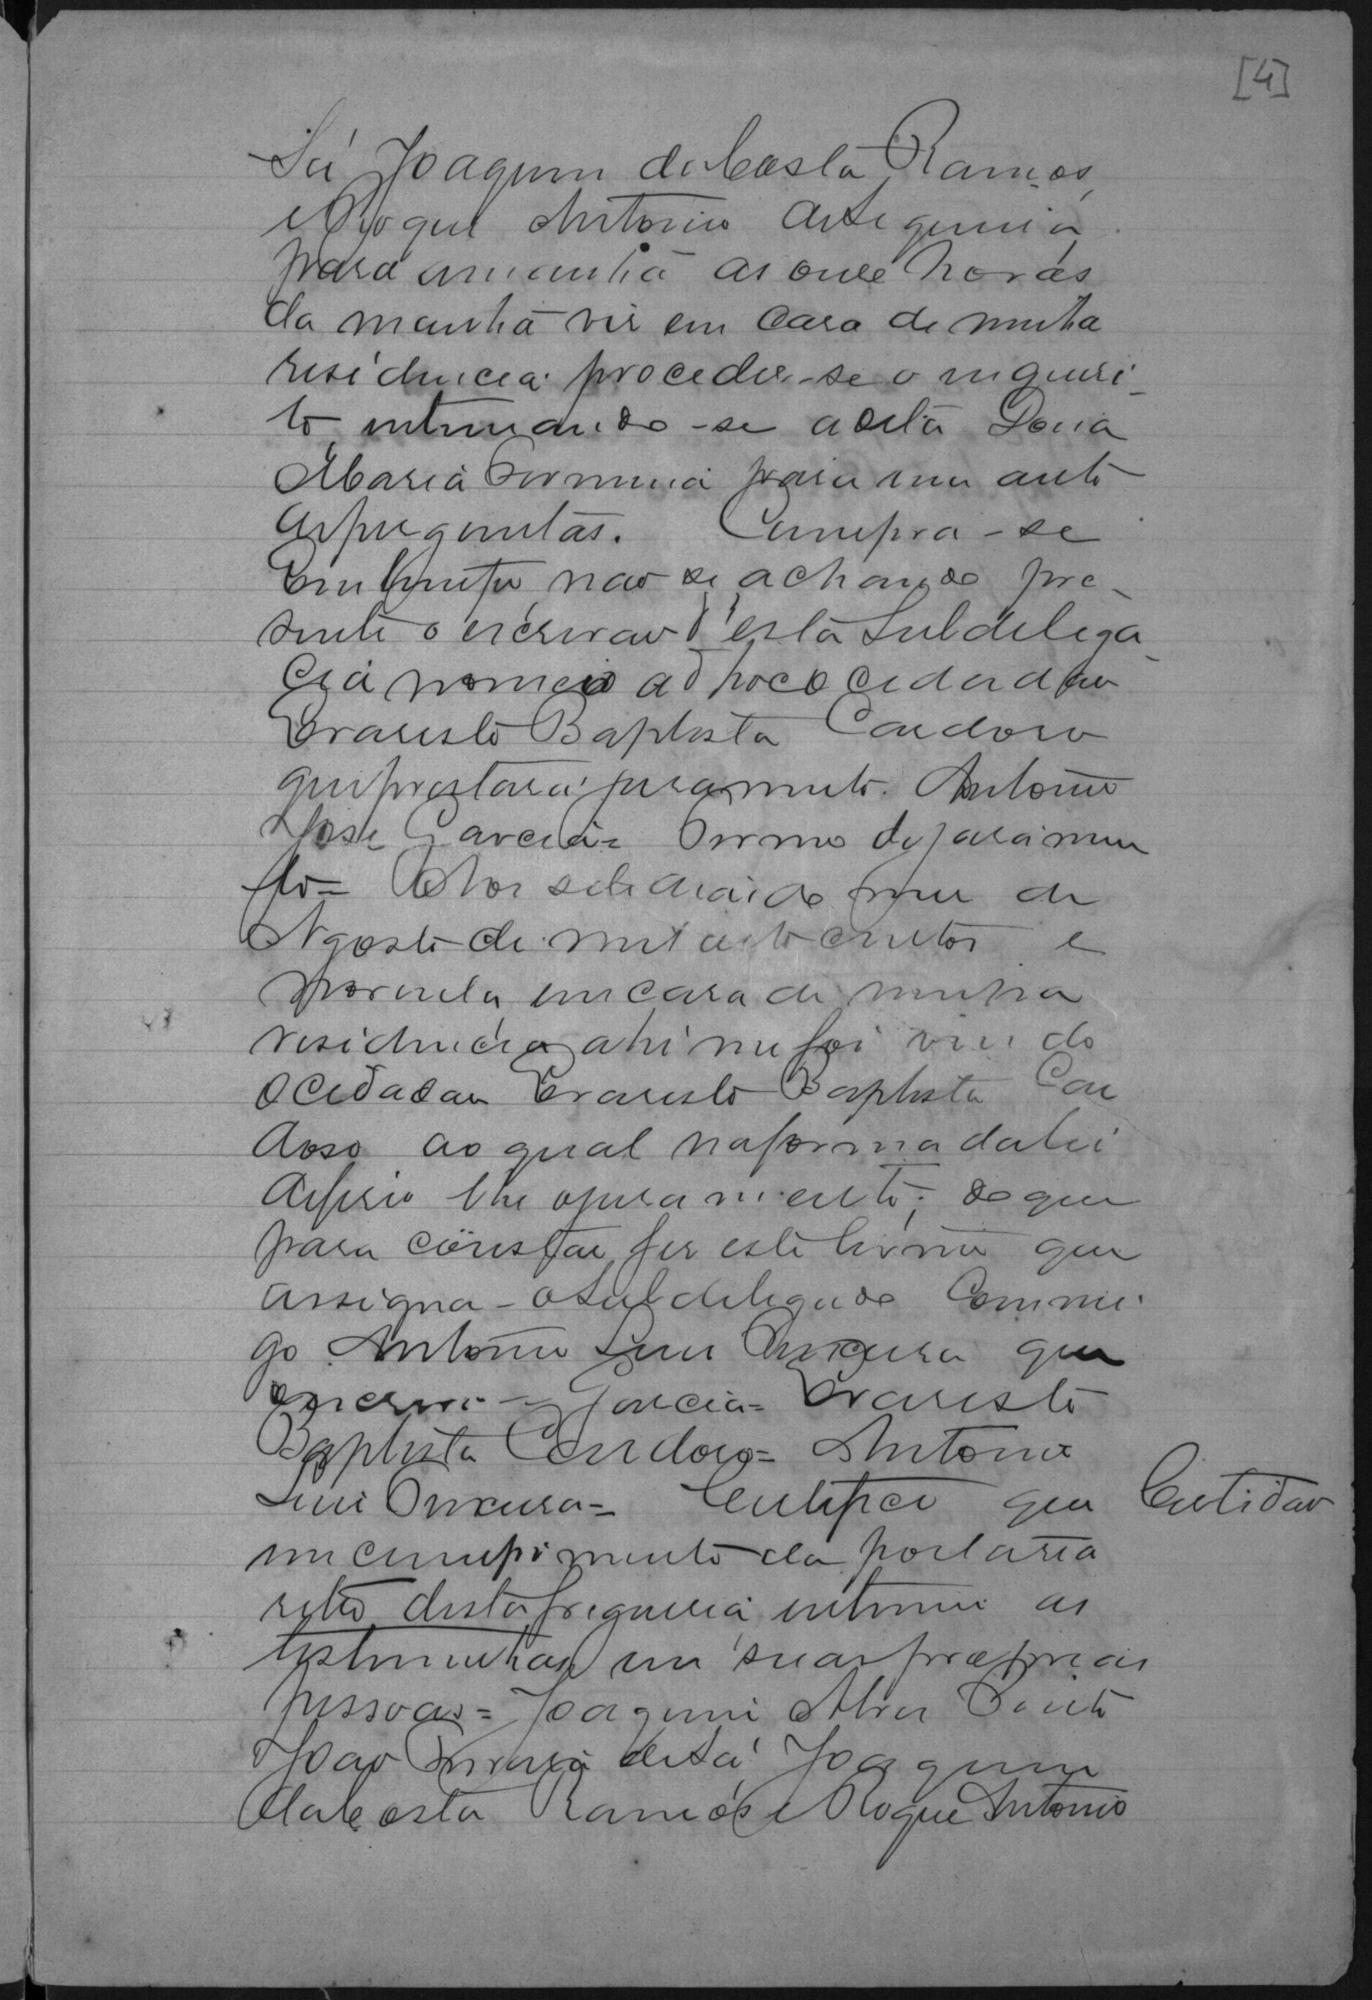 [4]
Sá Joaquim da Costa Ramos,
e Roque Antonio de Sequeira
para amanhã as onze horas
da manhã vir em casa de minha
residencia proceder-se o inqueri-
to, intimando-se a dita Dona
Maria Firmina para um auto
de preguntas. Cumpra-se
Em tempo, não se achando pre-
sente o escrivão d'esta Subdelega-
cia nomeio ad hoc o cidadão
Evaristo Baptista Cardoso
que prestará juramento. Antonio
José Garcia = Termo de juramen
to = Aos seis dias do mes de
Agosto de mil oito centos e
noventa, em casa de minha
residencia, ahi me foi vindo
o cidadão Evaristo Baptista Car
doso ao qual na forma da lei
defirio lhe o juramento; do que
para constar fez este termo que
assigna o Subdelegado Commi-
go Antonio Luis que
escrevi = Garcia = Evaristo
Baptista Cardoso = Antonio
Luis = Certifico que Certidão
em cumprimento da portaria
retro desta freguesia, intimei as
testimunhas em suas proprias
pessoas = Joaquim Alves Pinto
João Pereira de Sá, Joaquim
da Costa Ramos e Roque Antonio